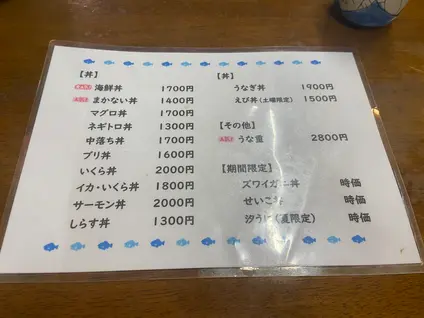 【丼】
海鮮丼 1700円
まかない丼 1400円
マグロ丼 1700円
ネギトロ丼 1300円
中落ち丼 1700円
ブリ丼 1600円
いくら丼 2000円
イカ・いくら丼 1800円
サーモン丼 2000円
しらす丼 1300円
【丼】
うなぎ丼 1900円
えび丼(土曜限定) 1500円
【その他】
うな重 2800円
【期間限定】
ズワイガニ丼 時価
せいこ丼 時価
汐うに(夏限定) 時価